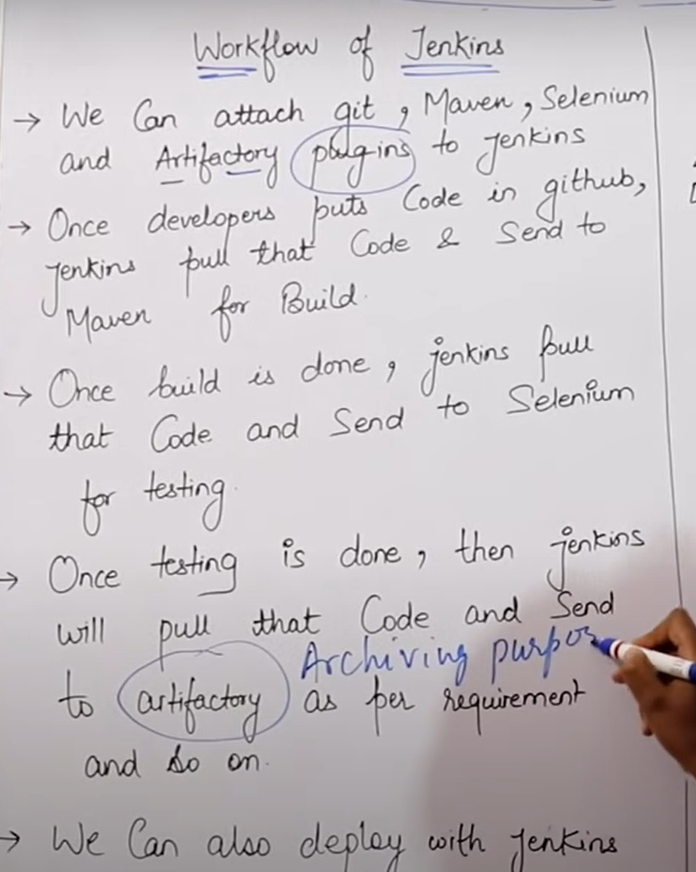 Workflow of Jenkins
→ We Can attach git, Maven, Selenium
and Artifactory plug-ins to jenkins
→ Once developers puts Code in github,
jenkins pull that Code & Send to
Maven for Build.
→ Once build is done, jenkins pull
that Code and Send to Selenium
for testing.
→ Once testing is done, then jenkins
will pull that Code and Send
Archiving purpos
to artifactory as per requirement
and so on.
→ We Can also deploy with jenkins